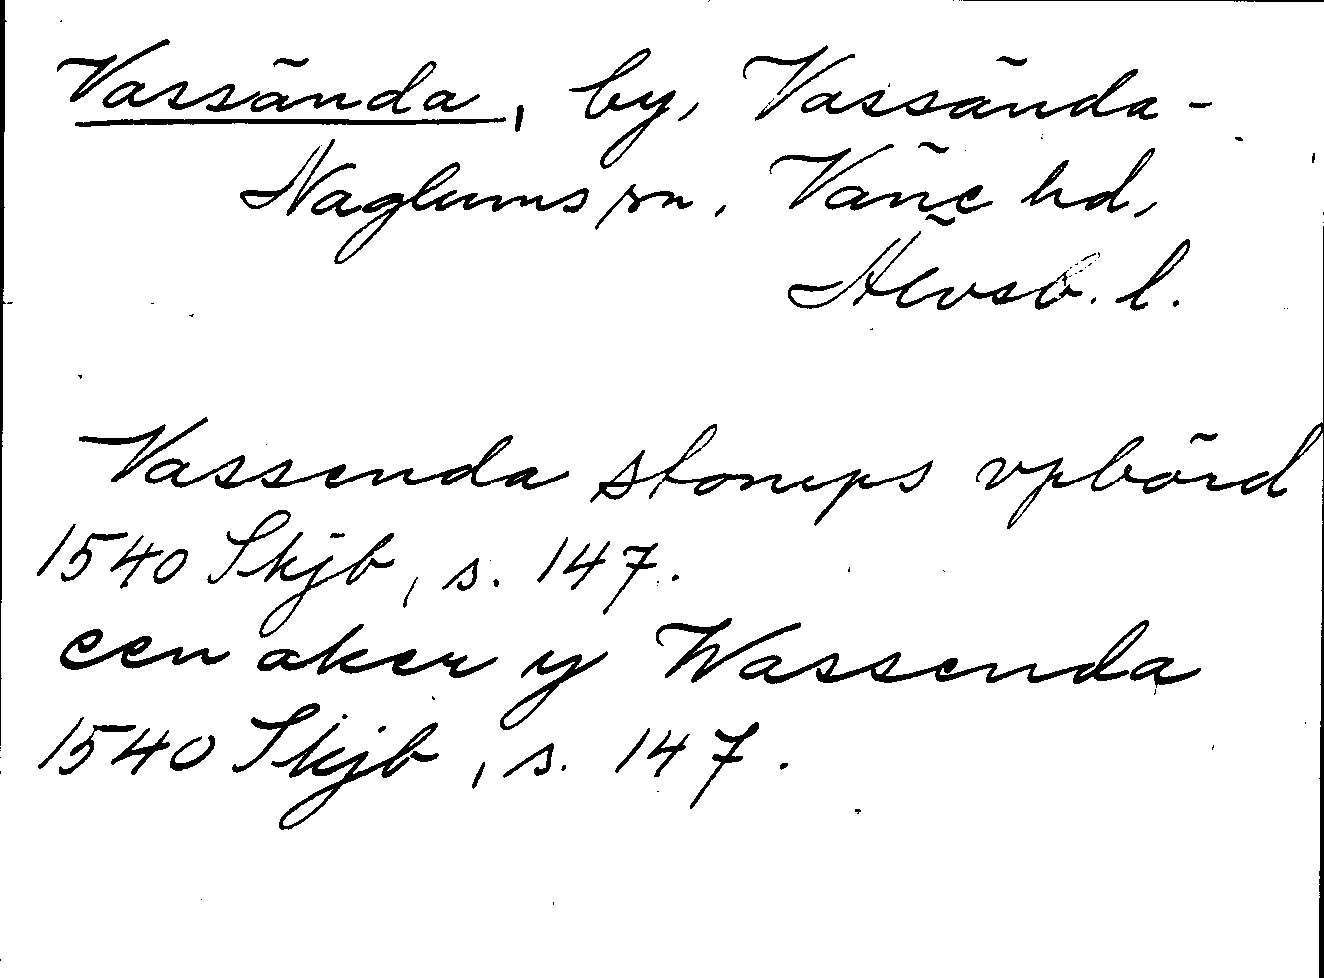 Vassända, by, Vassända-
Naglums sn. Väne hd,
Älvsb. l.
Vassenda stomps vpbörd
1540 Skjb, s. 147.
een aker y Wassenda
1540 Skjb, s. 147.